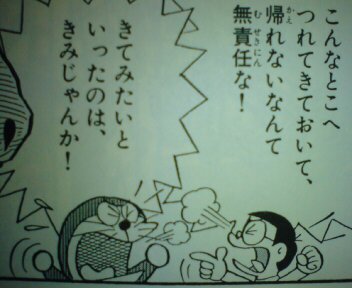 こんなとこへ
つれてきておいて、
帰れないなんて
無責任な！
きてみたいと
いったのは、
きみじゃんか！